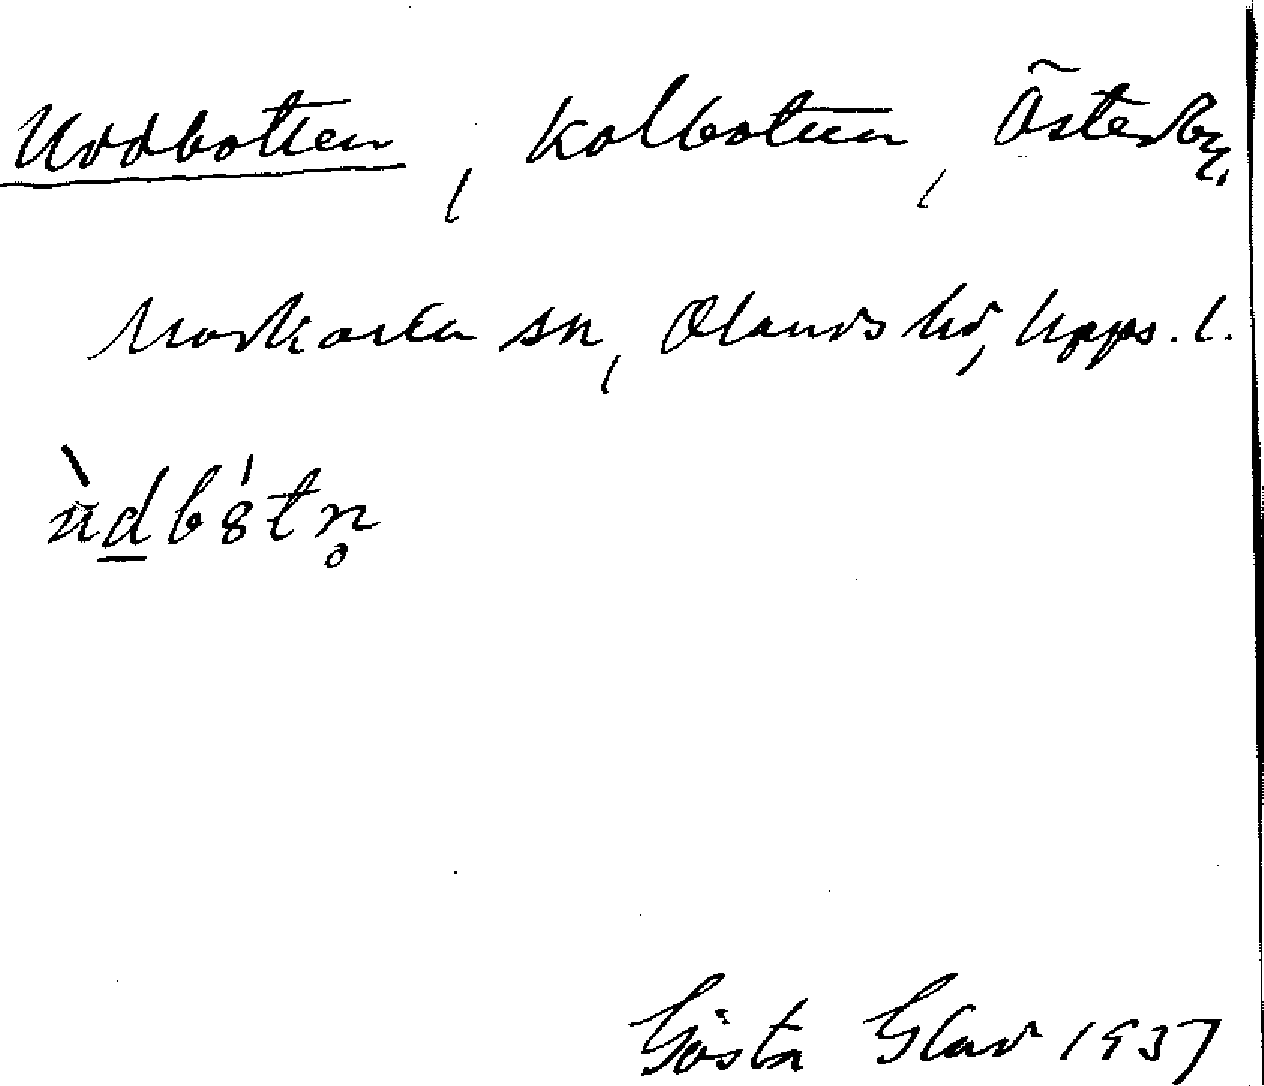 Uddbotten, Kolbotten, Österby,
Morkarla sn, Olands hd, Upps. l.
ùdbátn̥
Gösta Glad 1937